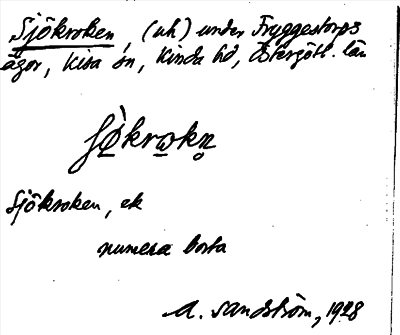 Sjökroken, (uh) under Fryggestorps
ägor, Kisa sn, Kinda hd, Östergötl. län
Sjökroken, ek
numera borta
A. Sandström, 1928